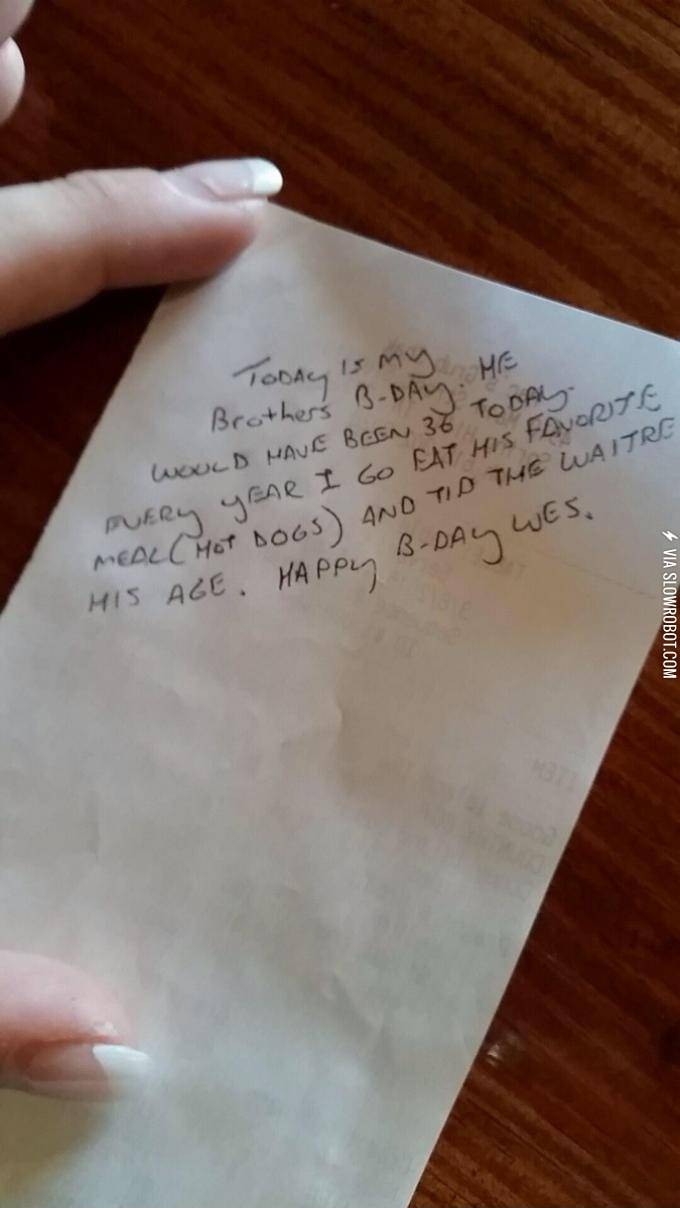 TODAY IS MY
Brothers B-DAY. HE
WOULD HAVE BEEN 36 TODAY.
EVERY YEAR I GO EAT HIS FAVORITE
MEAL (HOT DOGS) AND TID THE WAITRE
HIS AGE. HAPPY B-DAY WES.
VIA SLOWROBOT.COM